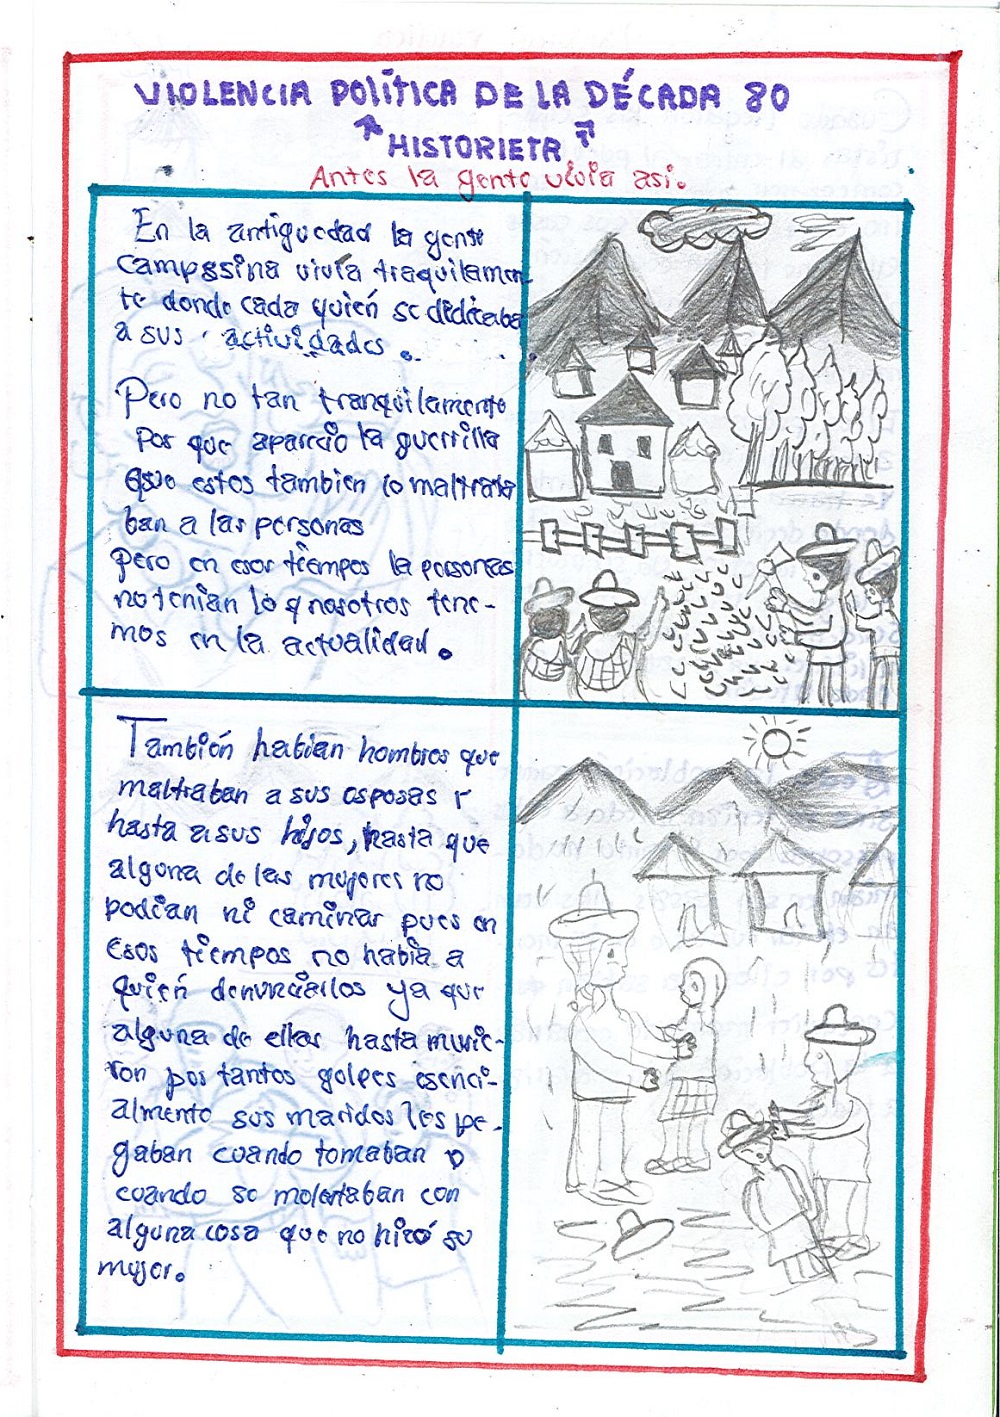 VIOLENCIA POLÍTICA DE LA DÉCADA 80
"HISTORIETA"
Antes la gente vivia asi.
En la antiguedad la gente
campesina vivía traquilamen-
te donde cada quién se dedicaba
a sus actividades.
Pero no tan tranquilamente
por que aparecio la guerrilla
que estos tambien lo maltrata
ban a las personas
Pero en esos tiempos la personas
no tenian lo q nosotros tene-
mos en la actualidad.
También habian hombres que
maltraban a sus esposas y
hasta a sus hijos, hasta que
alguna de las mujeres no
podian ni caminar pues en
esos tiempos no había a
quién denunciarlos ya que
alguna de ellas hasta murie-
ron por tantos golpes esenci-
almente sus maridos les pe-
gaban cuando tomaban o
cuando se molestaban con
alguna cosa que no hizó su
mujer.